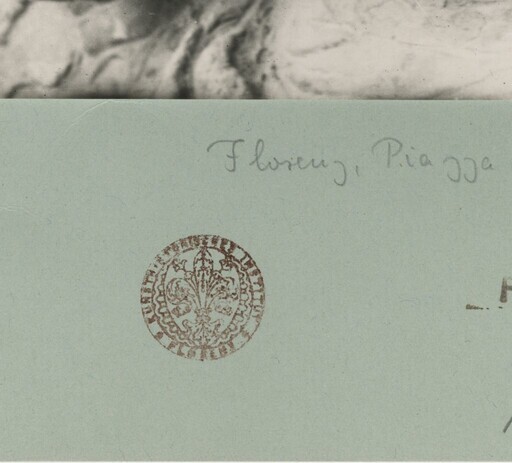 Florenz, Piazza
KUNSTHISTORISCHES INSTITUT
FLORENZ